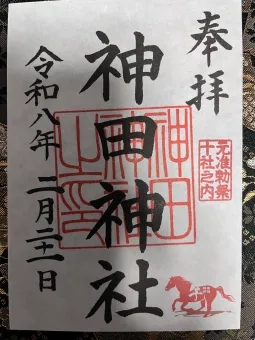 奉拝
元准勅祭
十社之内
神田神社
神田
神社
之印
令和八年 二月二十一日